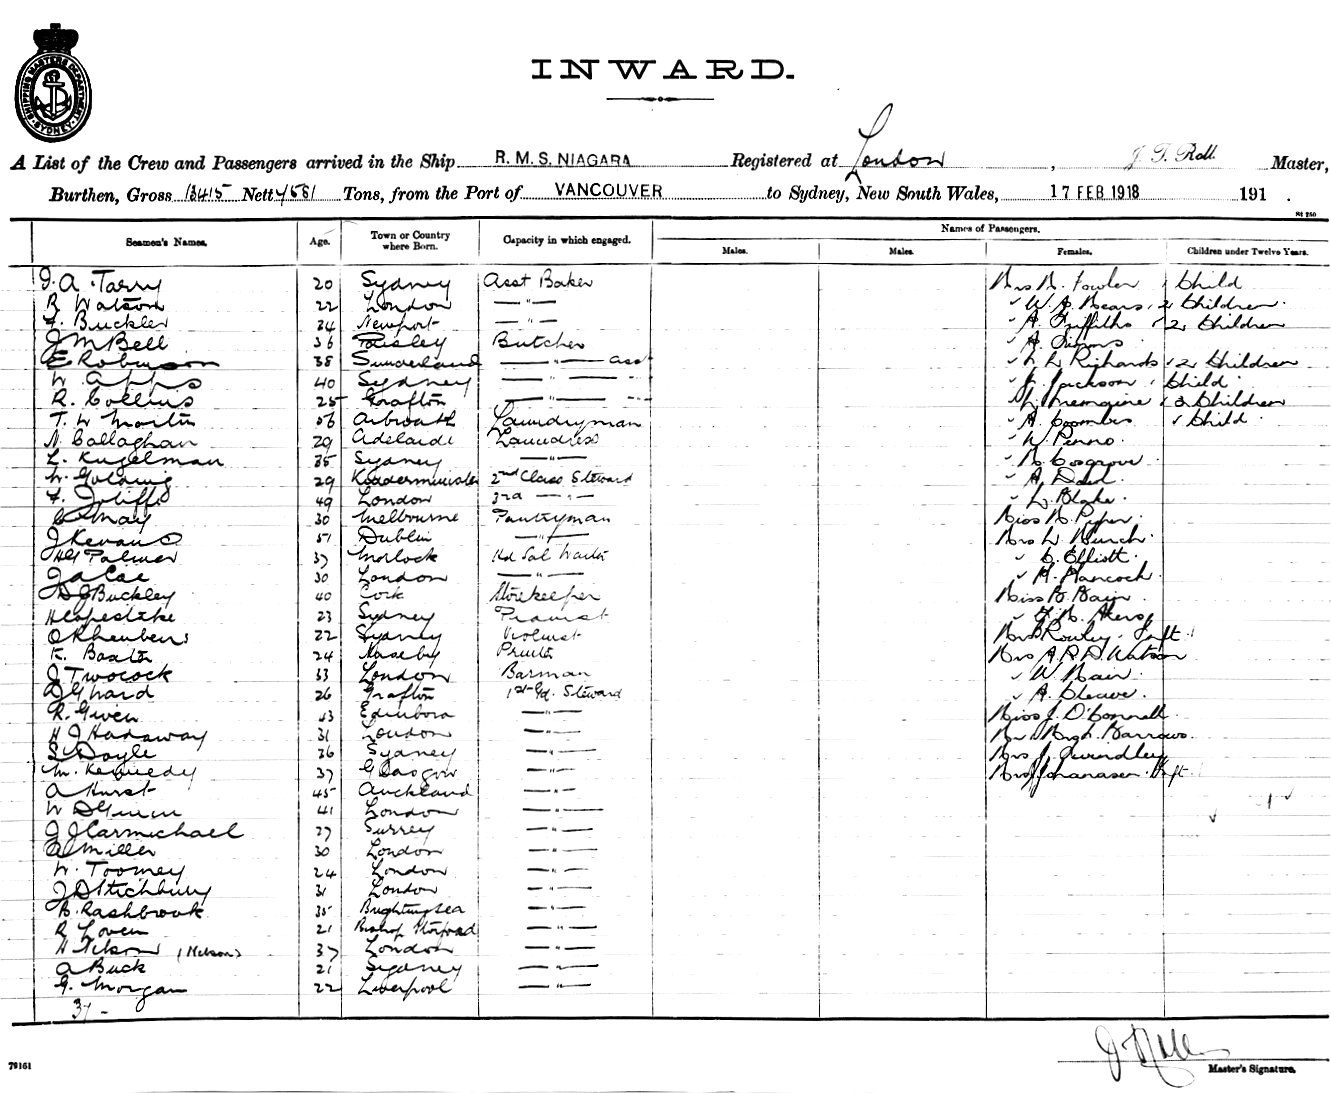 SHIPPING MASTERS DEPARTMENT SYDNEY
INWARD.
A List of the Crew and Passengers arrived in the Ship R.M.S. NIAGARA Registered at London, J. T. Roll. Master,
Burthen, Gross 13415 Nett 7581 Tons, from the Port of VANCOUVER to Sydney, New South Wales, 17 FEB 1918 191 .
St 250
Seamen's Names. Age. Town or Country where Born. Capacity in which engaged. Names of Passengers.
Males. Males. Females. Children under Twelve Years.
J. A. Tarry 20 Sydney Asst Baker Mrs M. Fowler 1 Child
R Watson 22 London —"— " W. A. Mears 2 Children
F. Buckler 24 Newport —"— " A. Griffiths 2 Children
J M Bell 36 Paisley Butcher " A.
E Robinson 38 Sunderland —"— asst " L Richards 2 Children
W. Apps 40 Sydney —"— " J. Jackson 1 Child
R. Collins 25 Grafton —"— " Children
T. W Martin 56 Arbroath Laundryman " A Coombes 1 Child
N. Callaghan 29 Adelaide Laundress " W Penno.
L. Kugelman 35 Sydney —"— " M. Cosgrove
W. Golding 29 Kidderminister 2nd Class Steward " A. Dodd.
F. Joliffe 49 London 3rd —"— " L. Blake.
C May 30 Melbourne Pantryman Miss M. Piper.
J Kevans 51 Dublin —"— Mrs W. Munch.
H G Palmer 37 Morlock Hd Sal Waiter " C. Elliott.
J A Coe 30 London —"— " H. Hancock.
D J Buckley 40 Cork Storekeeper Miss B. Bain
H Copestake 23 Sydney Pianist " Akers
O Rheuben 22 Sydney Violinist Mrs Rowley. Inft.
K. Baxter 24 Naseby Printer Mrs A. R. D. Watson
J Twocock 33 London Barman " W Nain
D G Ward 26 Grafton 1st Gd. Steward " A. Cleave.
R. Given 43 Edinboro —"— Miss J. O'Connell.
H J Hadaway 31 London —"— Barrows.
S Doyle 36 Sydney —"— Mrs J. Gwindley
M. Kennedy 37 Glasgow —"— Inft.
A Hurst 45 Auckland —"—
W D Gunn 41 London —"—
J J Carmichael 27 Surrey —"—
A Miller 30 London —"—
W. Toomey 24 London —"—
J D Stichbury 31 London —"—
B. Rashbrook 35 Brightlingsea —"—
R Loven 21 Bishop Stortford —"—
H Nelson (Nelson) 37 London —"—
A Buck 21 Sydney —"—
G. Morgan 22 Liverpool —"—
37 -
J. Roll
79161
Master's Signature.